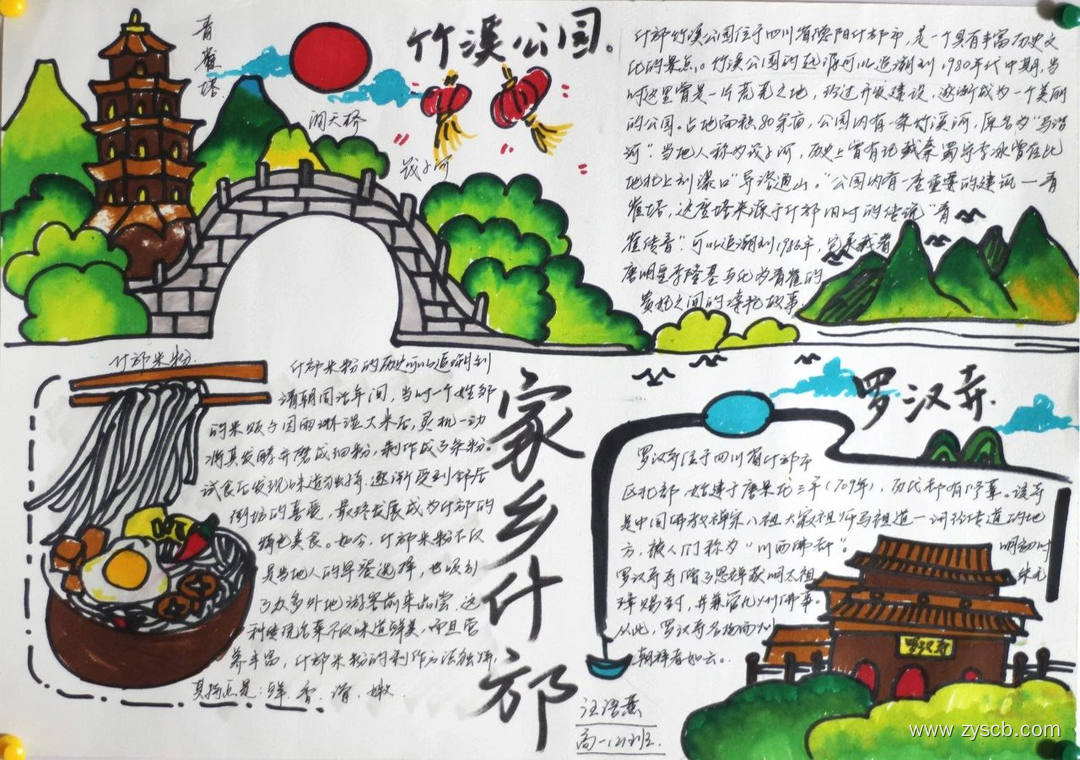 竹溪公园。
青雀塔
润天桥
什邡竹溪公园位于四川省德阳什邡市,是一个具有丰富历史文
化的景点。竹溪公园的起源可以追溯到1980年代中期,当
时这里曾是一片荒芜之地,经过开发建设,逐渐成为一个美丽
的公园。占地面积80余亩,公园内有一条竹溪河,原名为"马沿
河".当地人称为筏子河,历史上曾有记载秦蜀守李冰曾在此
"公园内有一座重要的建筑一青
雀塔,这座塔来源于什邡旧时的传说"青
雀传音".可以追溯到1986年,
唐明皇李隆基
之间的
故事.
什邡米粉
什邡米粉的历史可以追溯到
清朝同治年间,当时一个姓邹
的米贩
因雨淋湿大米后,灵机一动
将其发酵并磨成细粉,制作成了米粉。
试食后发现味道
逐渐受到邻居
街坊的喜爱,最终发展成为什邡的
特色美食。如今,什邡米粉不仅
是当地人的早餐选择,也吸引
了众多外地游客前来品尝,这
不仅味道鲜美,而且营
养丰富,什邡米粉的制作方法独特,
其特点是:鲜、香、滑、嫩.
家乡什邡
罗汉寺.
罗汉寺位于四川省什邡市
区北部,始建于唐景龙三年(709年),历代都有修葺。该寺
是中国佛教禅宗八祖
马祖道一
的地
方,被人们称为"川西佛都"。
明初时
罗汉寺
明太祖
朱元
璋赐封,并兼管九州佛事。
从此,罗汉寺名扬四州
朝拜者如云。
罗汉寺
高一
班.
www.zyscb.com